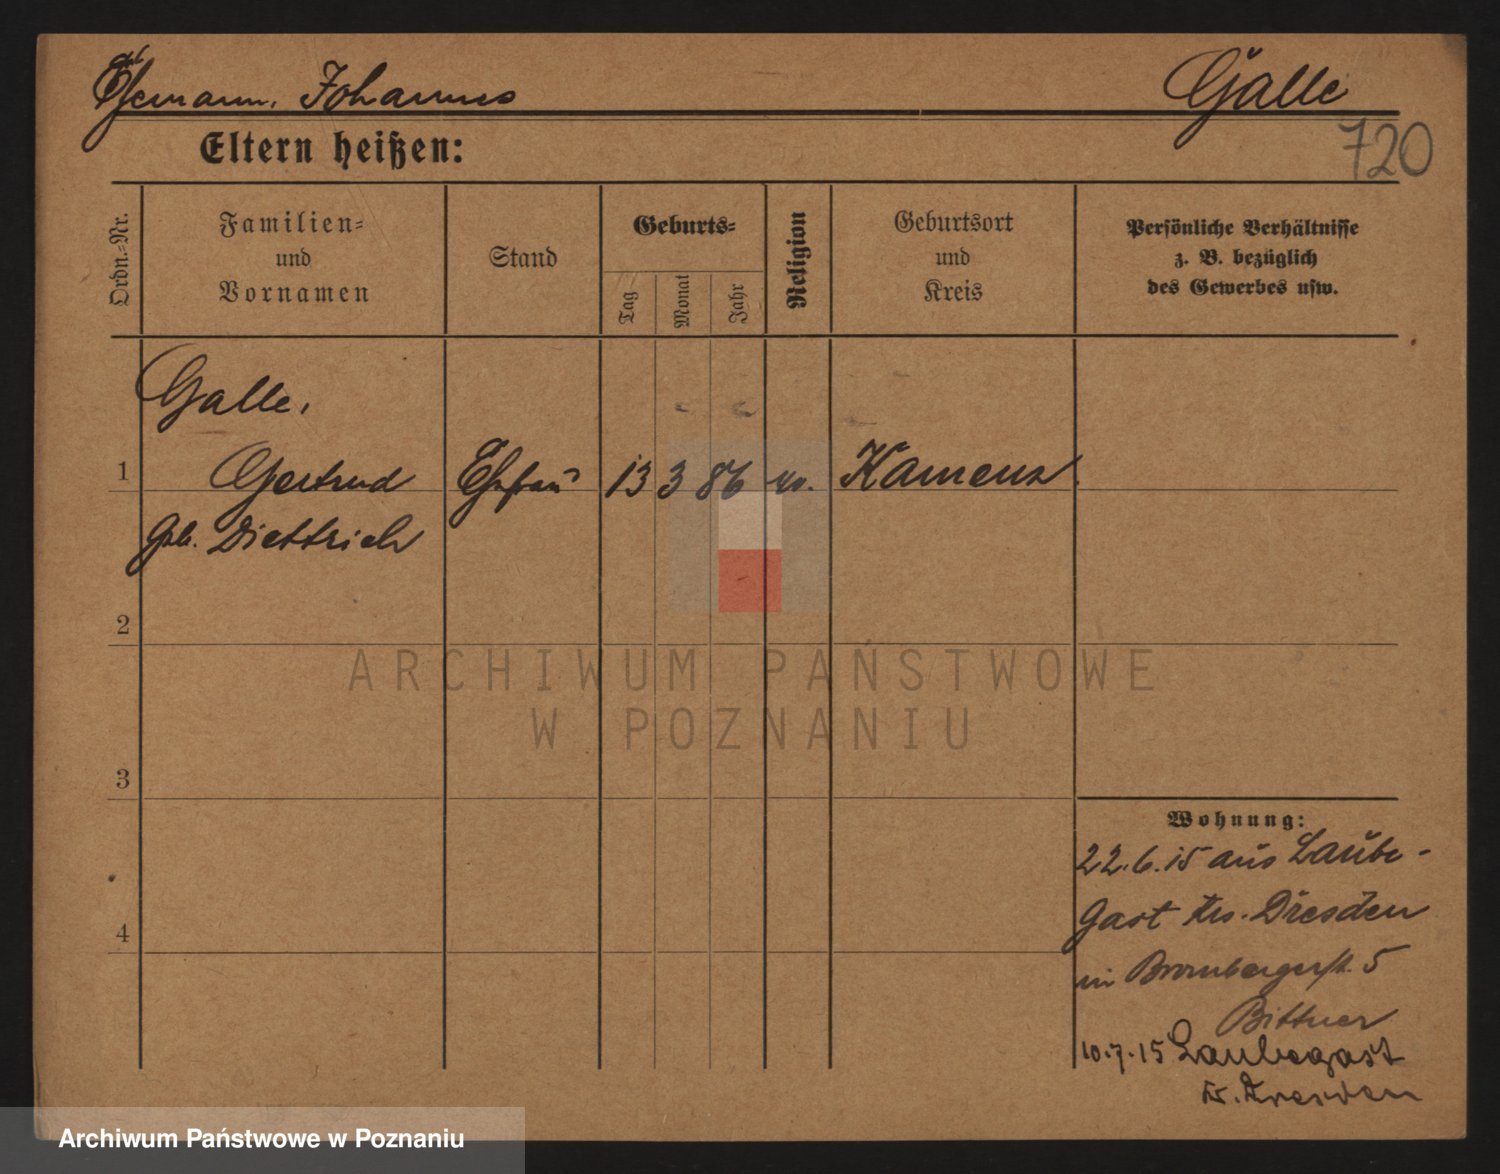 Ehemann, Johannes Galle
720
Eltern heißen:
Ordn.=Nr.
Familien=
und
Vornamen
Stand
Geburts=
Tag
Monat
Jahr
Religion
Geburtsort
und
Kreis
Persönliche Verhältnisse
z. B. bezüglich
des Gewerbes usw.
Galle,
1 Gertrud Ehefrau 13 3 86 ev. Kamenz
geb. Diettrich
2
3
4
Wohnung:
22.6.15 aus Laube-
gast Krs. Dresden
in Brombergerstr. 5
Bittner
10.7.15 Laubegast
Kr. Dresden
ARCHIWUM PAŃSTWOWE
W POZNANIU
Archiwum Państwowe w Poznaniu